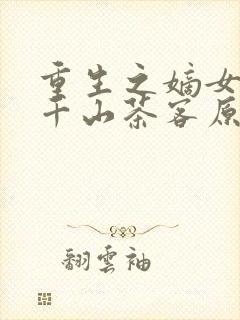 重生之嫡女
千山茶客原
翻雲袖